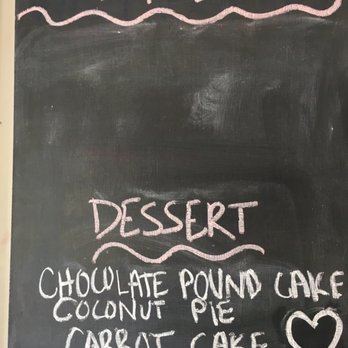 DESSERT
CHOCOLATE POUND CAKE
COCONUT PIE
CARROT CAKE